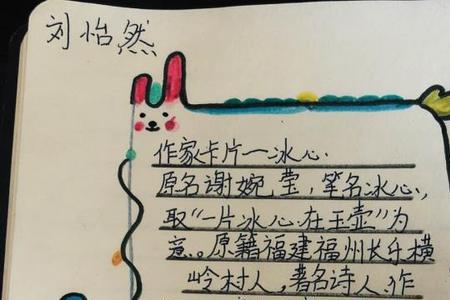 刘怡然
作家卡片一冰心.
原名谢婉莹，笔名冰心.，
取“一片冰心.在玉壶”为
意.。原籍福建福州长乐横
岭村人，著名诗人.作